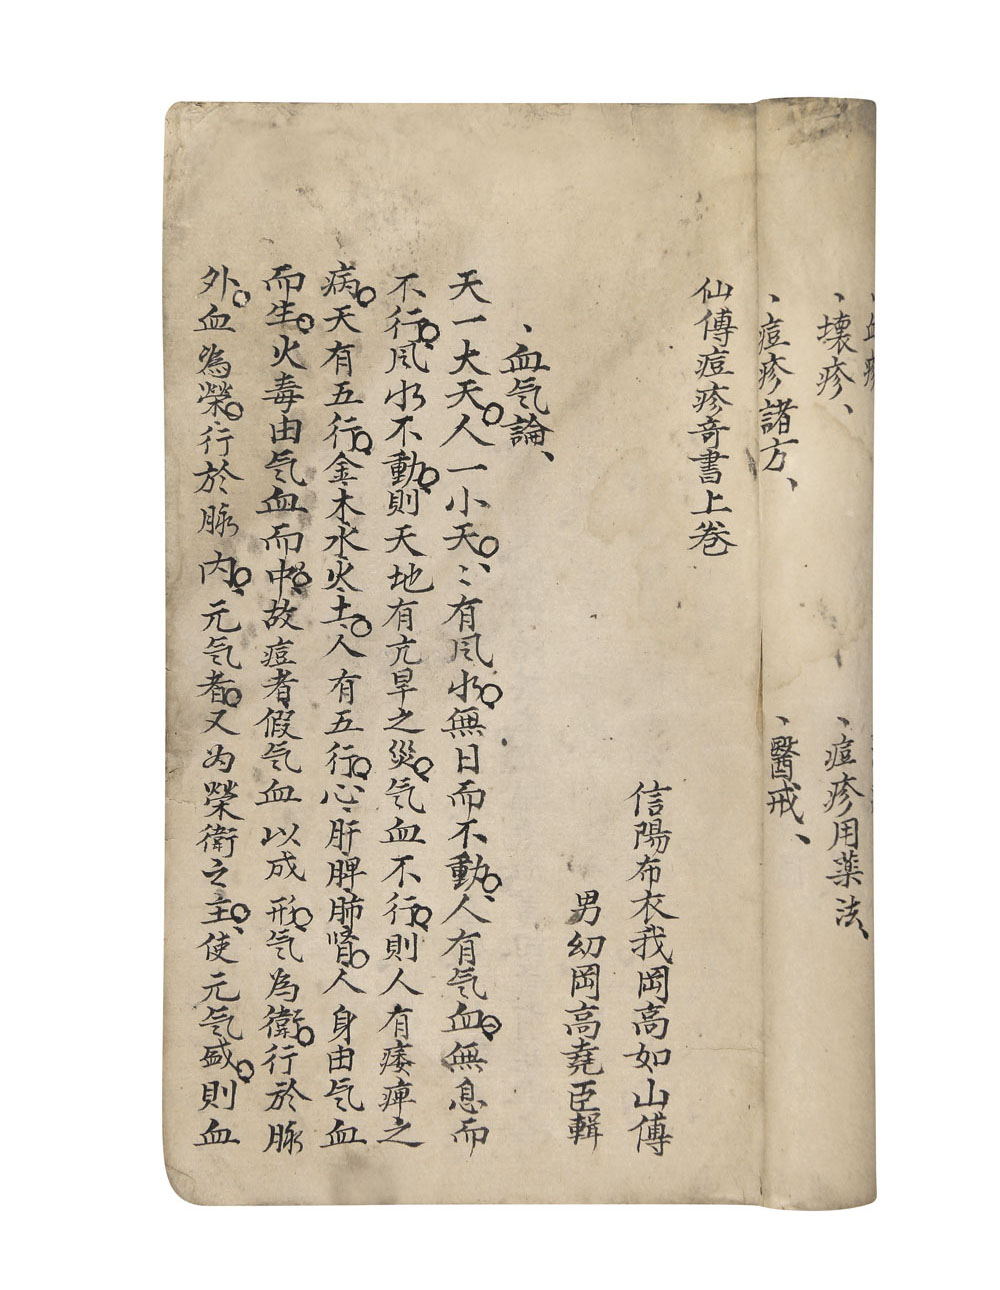 壞疹、
、痘疹用藥法、
、痘疹諸方、
、醫戒、
仙傅痘疹奇書上卷
信陽布衣我岡高如山傅
男幼岡高堯臣輯
、血気論、
天一大天人一小天。〻有風水。無日而不動。人有気血。無息而
不行。風水不動。則天地有亢旱之災。気血不行。則人有痿痺之
病。天有五行。金木水火土。人有五行。心肝脾肺腎。人身由気血
而生。火毒由気血而中。故痘者假気血以成形。気為衛。行於脉
外。血為榮。行於脉內。元気者。又为榮衛之主。使元気盛。則血